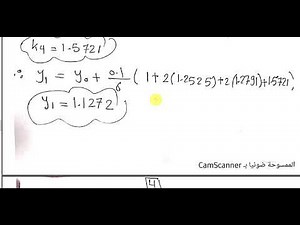 k4 = 1.5721
∴ y1 = y0 + 0.1/6 ( 1 + 2(1.2525) + 2(1.2791) + 1.5721 )
y1 = 1.1272
الممسوحة ضوئيا بـ CamScanner
4